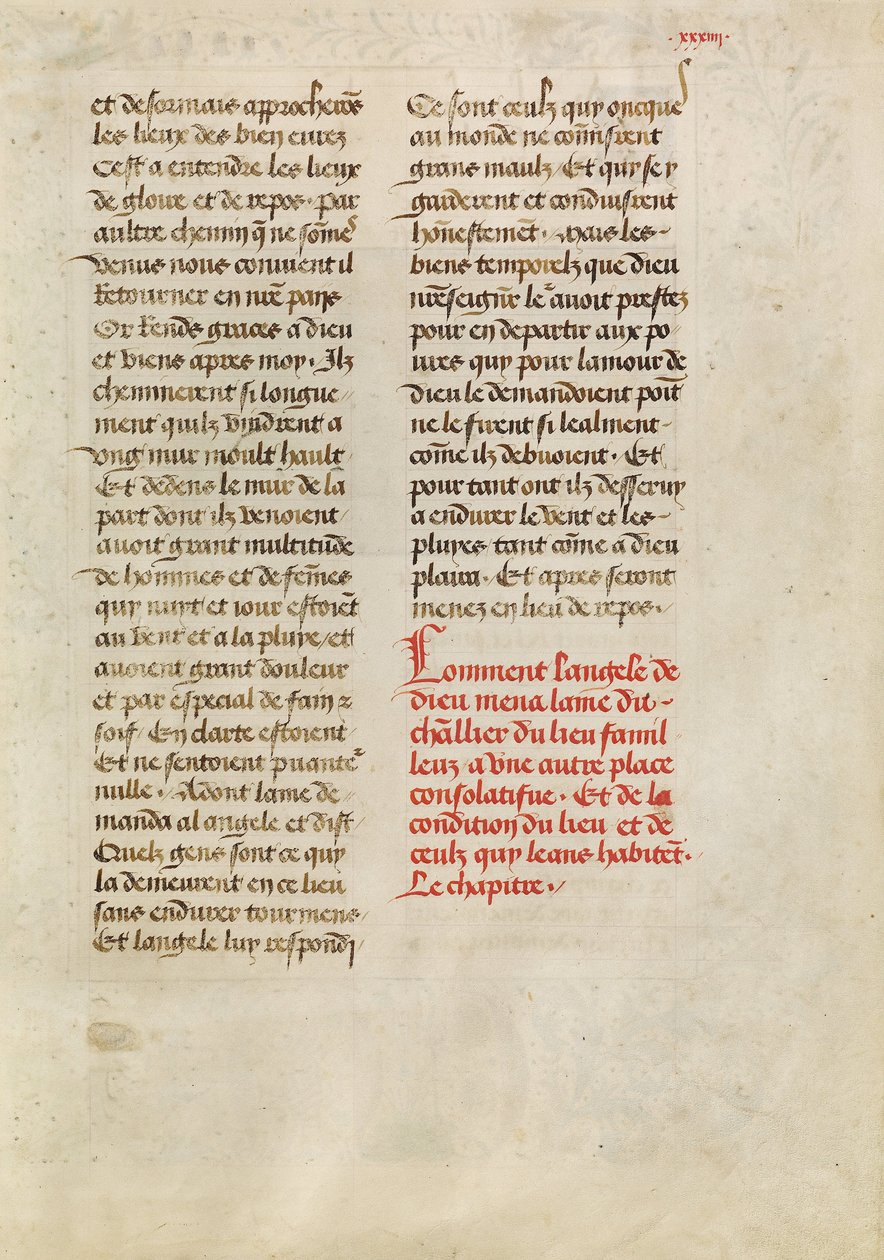 xxxiiii
et desormais approcherōs
les lieux des bien eurez
Cest a entendre les lieux
de gloire et de repos. par
aultre chemin q̄ ne sōmes
venus nous conuient il
Retourner en nr̄e pays
Or Rends graces a dieu
et viens apres moy. Ilz
cheminerent si longue
ment quilz vindrent a
vng mur moult hault
Et dedens le mur de la
part dont ilz venoient
auoit grant multitude
de hommes et de fem̄es
quy nuyt et iour estoiēt
au vent et a la pluye/ et
auoient grant douleur
et par especial de fain ⁊
soif/ En clarte estoient
Et ne sentoient puante
nulle. Adont lame de
manda al angele et dist
Quelz gens sont ce quy
la demeurent en ce lieu
sans endurer tourmens
Et langele luy respondi
Ce sont ceulz quy oncques
au monde ne com̄isrent
grans maulz/ Et quy se y
garderent et conduisrent
hōnestemēt. Mais les
biens temporelz que dieu
nr̄e seignr̄ le² auoit prestez
pour en departir aux po
ures quy pour lamour de
dieu le demandoient poīt
ne le firent si lealment
cōme ilz debuoient. Et
pour tant ont ilz desseruy
a endurer le vent et les
pluyes tant cōme a dieu
plaira. Et apres seront
menez en lieu de repos.
Comment langele de
dieu mena lame du
chl̄lier du lieu famil
leuz/ a vne autre place
consolatifue. Et de la
condition du lieu et de
ceulz quy leans habitēt.
Le chapitre.